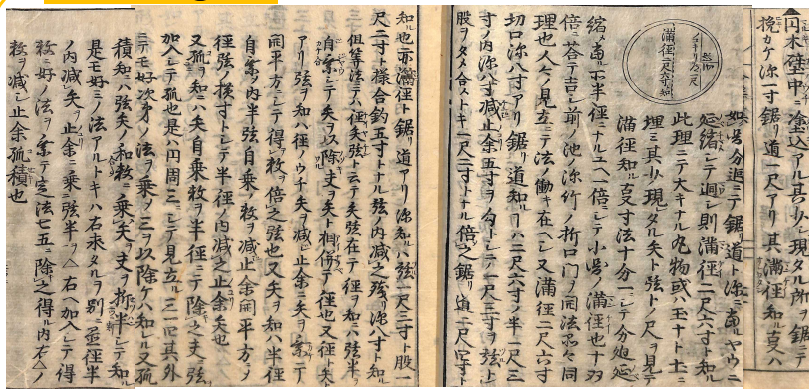 円木壁中ニ塗込アル其少シ現タル所ヲ鋸ニテ
挽カケ深一寸鋸道一尺アリ其満徑知ル莫ハ
満徑二尺六寸知
如此分廻ニテ鋸道ト深ニ當ルヤウニ
延縮シテ廻シ則満徑二尺六寸ト知
此理ニテ大キナル丸物或ハ玉ナト土ニ
埋ミ其少現タル矢ト弦トノ尺ヲ見テ
満徑知ル寸法十分一ニシテ分廻延
縮當ル半徑ナルユヘ一倍シテ小サキ満徑也十双
倍ニ荅テ吉シ前ノ池深竹ノ折口門ノ開法
理也人々見立テ法ノ働キ在ヘシ又満徑二尺六寸
切口深八寸アリ鋸道知ハ二尺六寸ノ半一尺三
寸ノ内深八寸減止余五寸ヲ勾トシテ一尺三寸ヲ弦ト
股ヲタメ合ストキ一尺二寸トナル倍之鋸道二尺四寸ト
知也亦満徑ト鋸道アリ深知ハ弦一尺三寸ト股一
尺二寸ト操合釣五寸トナル弦ノ内減之残リ深八寸ト知
但等法云ハ徑矢弦ト云テ矢弦在テ徑ヲ知ハ弦半ヲ
自乗シテ矢ヲ以除之矢ト相併テ徑也又徑ト矢ト
アリ弦ヲ知ハ徑ノウチ矢ヲ減止余ニ矢ヲ乗シテ
開平方シテ得数ヲ倍之弦也又矢ヲ知ハ半徑
自乗ノ内半弦自乗ノ数ヲ減止余開平方ヲ
徑弦ノ横寸トシテ半徑ノ内減之止余矢也
又弧ヲ知ハ矢自乗数ヲ半徑ニテ除之弦
加入シテ弧也是ハ円周三ニシテ見立ル三一四其外
ニテモ好次第ノ法ヲ乗シ三ヲ以除ケハ知ル又弧
積知ハ弦矢ノ和数ニ乗矢之ヲ折半シテ知ル
是モ好ニノ法アルトキハ右求タルヲ別ニ並徑半
ノ内減矢ヲ止余ニ乗弦半ヲ右ヘ加入シテ得
数ニ好ノ法ヲ乗テ定法七五ニ除之得ル内右ノ
数ヲ減シ止余弧積也